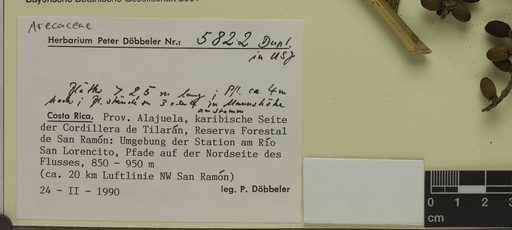 Bayerischen Botanischen Gesellschaft 2001
Arecaceae
Herbarium Peter Döbbeler Nr.: 5822 Dupl.
in USJ
Blätter > 25 m lang; Pfl. ca 4 m
hoch; in Mannshöhe
am Stamm
Costa Rica, Prov. Alajuela, karibische Seite
der Cordillera de Tilarán, Reserva Forestal
de San Ramón: Umgebung der Station am Río
San Lorencito, Pfade auf der Nordseite des
Flusses, 850 - 950 m
(ca. 20 km Luftlinie NW San Ramón)
24 - II - 1990 leg. P. Döbbeler
0 1 2 3
cm